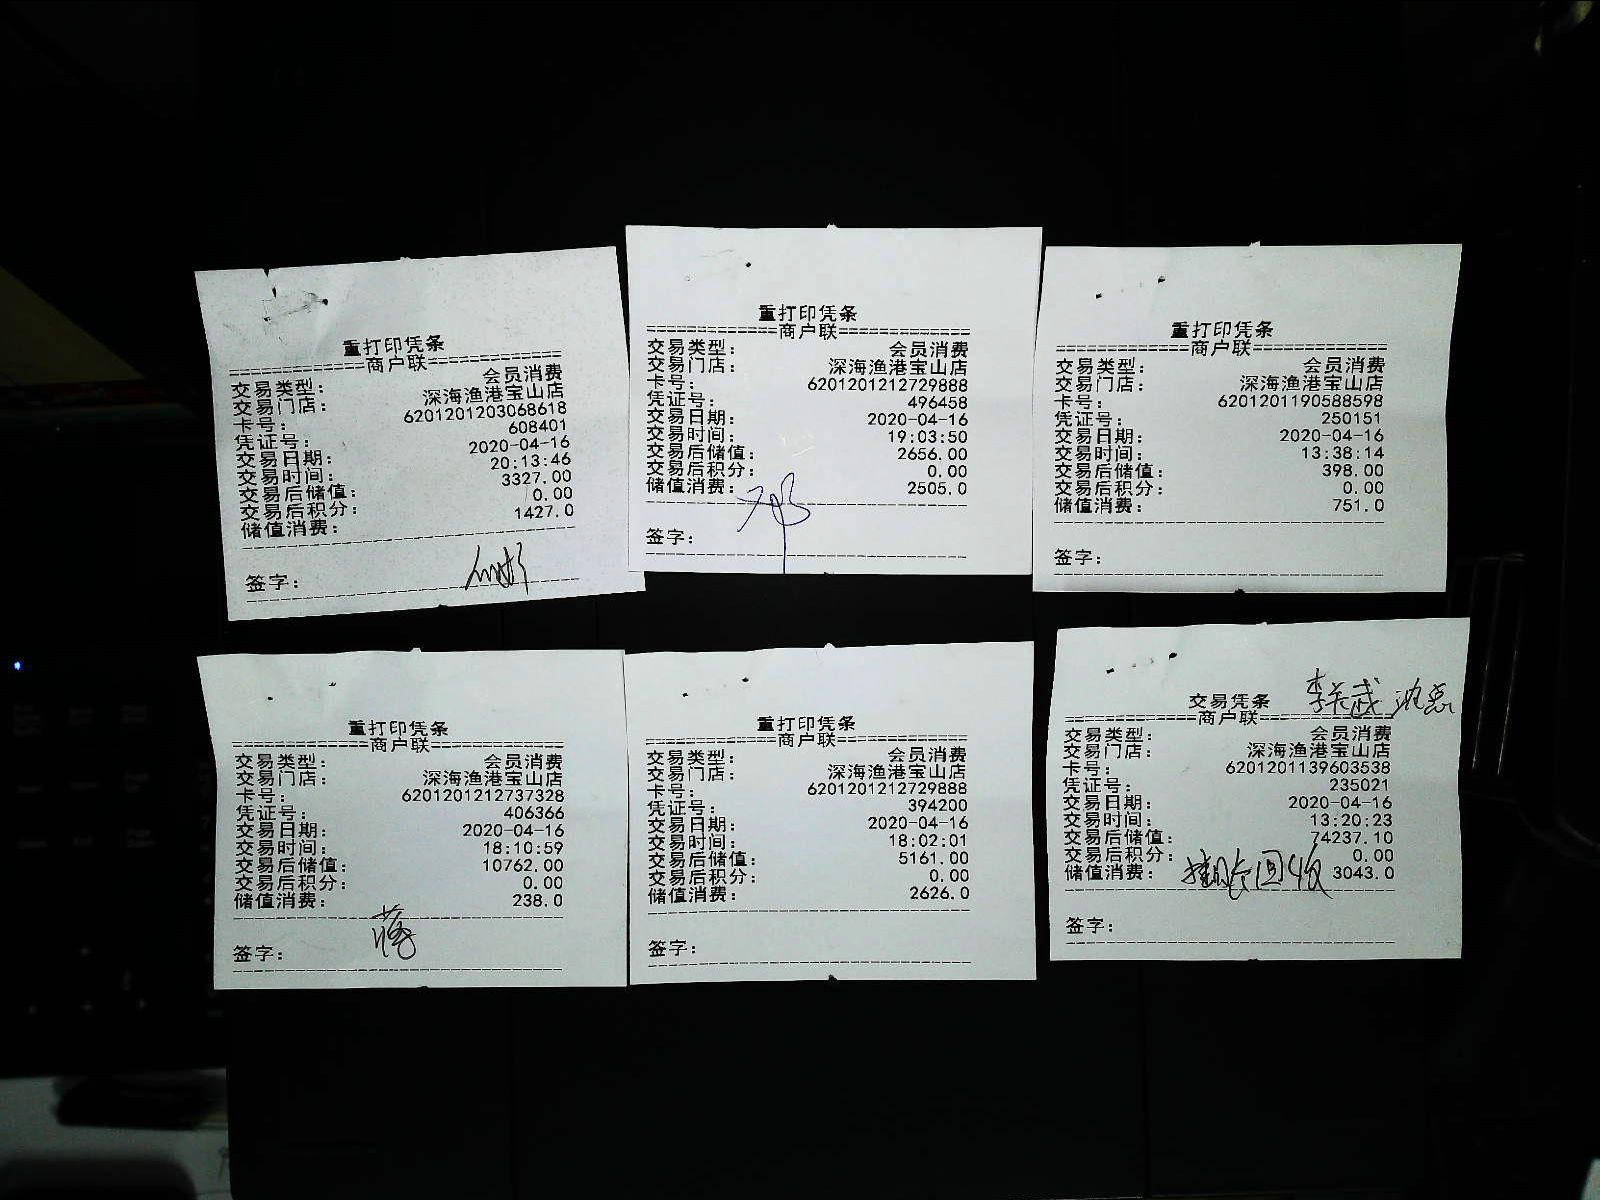 重打印凭条
==============商户联==============
交易类型： 会员消费
交易门店： 深海渔港宝山店
卡号： 6201201203068618
凭证号： 608401
交易日期： 2020-04-16
交易时间： 20:13:46
交易后储值： 3327.00
交易后积分： 0.00
储值消费： 1427.0
签字：
重打印凭条
==============商户联==============
交易类型： 会员消费
交易门店： 深海渔港宝山店
卡号： 6201201212729888
凭证号： 496458
交易日期： 2020-04-16
交易时间： 19:03:50
交易后储值： 2656.00
交易后积分： 0.00
储值消费： 2505.0
签字：
重打印凭条
==============商户联==============
交易类型： 会员消费
交易门店： 深海渔港宝山店
卡号： 6201201190588598
凭证号： 250151
交易日期： 2020-04-16
交易时间： 13:38:14
交易后储值： 398.00
交易后积分： 0.00
储值消费： 751.0
签字：
重打印凭条
==============商户联==============
交易类型： 会员消费
交易门店： 深海渔港宝山店
卡号： 6201201212737328
凭证号： 406366
交易日期： 2020-04-16
交易时间： 18:10:59
交易后储值： 10762.00
交易后积分： 0.00
储值消费： 238.0
蒋
签字：
重打印凭条
==============商户联==============
交易类型： 会员消费
交易门店： 深海渔港宝山店
卡号： 6201201212729888
凭证号： 394200
交易日期： 2020-04-16
交易时间： 18:02:01
交易后储值： 5161.00
交易后积分： 0.00
储值消费： 2626.0
签字：
交易凭条
==============商户联==============
交易类型： 会员消费
交易门店： 深海渔港宝山店
卡号： 6201201139603538
凭证号： 235021
交易日期： 2020-04-16
交易时间： 13:20:23
交易后储值： 74237.10
交易后积分： 0.00
储值消费： 3043.0
签字：